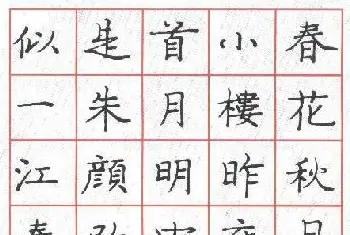 春花秋月
小樓昨
首月明
是朱顔
似一江春